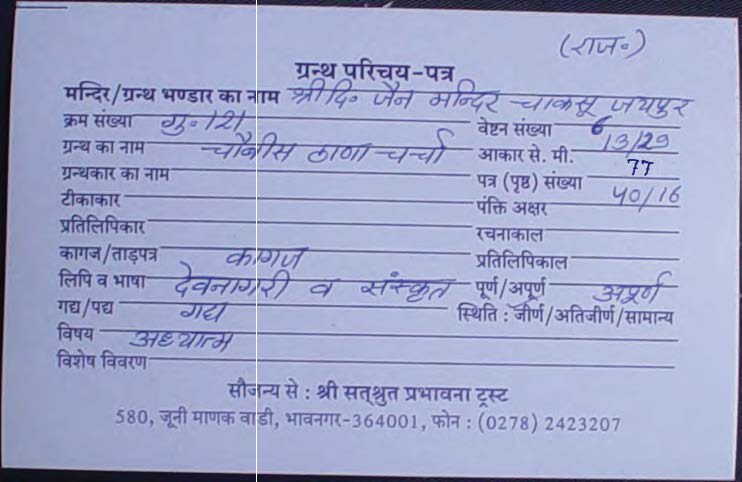 (राज०)
ग्रन्थ परिचय-पत्र
मन्दिर/ग्रन्थ भण्डार का नाम श्री दि० जैन मन्दिर चाकसू जयपुर
क्रम संख्या गु० 121 वेष्टन संख्या 6
ग्रन्थ का नाम चौबीस ठाणा चर्चा आकार से. मी. 13/29
ग्रन्थकार का नाम पत्र (पृष्ठ) संख्या 77
टीकाकार पंक्ति अक्षर 40/16
प्रतिलिपिकार रचनाकाल
कागज/ताड़पत्र कागज प्रतिलिपिकाल
लिपि व भाषा देवनागरी व संस्कृत पूर्ण/अपूर्ण अपूर्ण
गद्य/पद्य गद्य स्थिति : जीर्ण/अतिजीर्ण/सामान्य
विषय अध्यात्म
विशेष विवरण
सौजन्य से : श्री सत्श्रुत प्रभावना ट्रस्ट
580, जूनी माणक वाडी, भावनगर-364001, फोन : (0278) 2423207